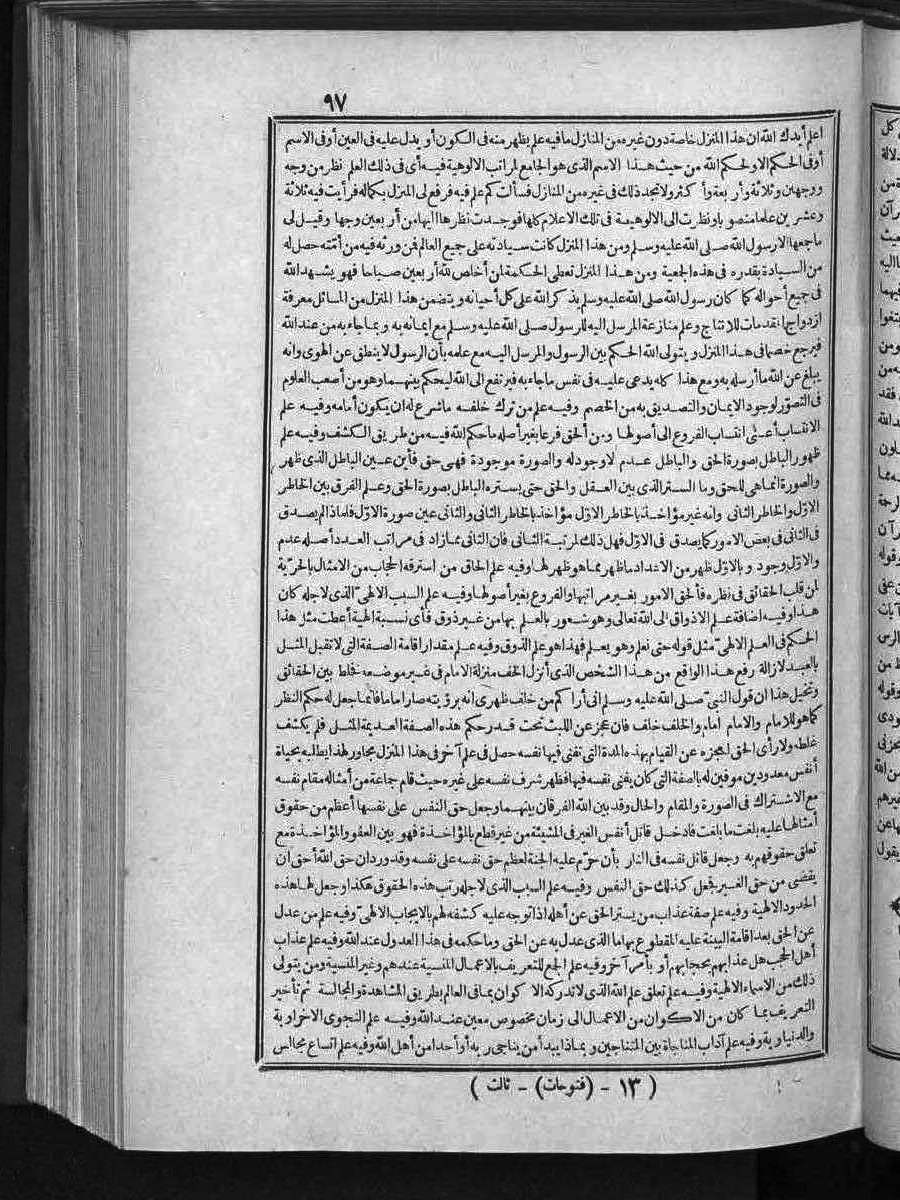 ٩٧
اعلم أيدك الله ان هذا المنزل خاصة دون غيره من المنازل ما فيه علم يظهر منه فى الكون أو يدل عليه فى العين أو فى الاسم
أو فى الحكم الا ولحكم الله من حيث هذا الاسم الذى هو الجامع لمراتب الالوهية فيه أى فى ذلك العلم نظر من وجه
ووجهين وثلاثة وأربعة وأكثر ولا يجد ذلك فى غيره من المنازل فسألت كم علم فيه فرفع لى المنزل بكماله فرأيت فيه ثلاثة
وعشرين علما منصوبا ونظرت الى الالوهية فى تلك الاعلام كلها فوجدت نظرها اليها من أربعين وجها وقيل لى
ما جمعها الا رسول الله صلى الله عليه وسلم ومن هذا المنزل كانت سيادته على جميع العالم فمن ورثه فيه من أمته حصل له
من السيادة بقدره فى هذه الجمعية ومن هذا المنزل تعطى الحكمة لمن أخلص لله أربعين صباحا فهو يشهد الله
فى جميع أحواله كما كان رسول الله صلى الله عليه وسلم يذكر الله على كل أحيانه ويتضمن هذا المنزل من المسائل معرفة
ازدواج المقدمات للانتاج وعلم منازعة المرسل اليه للرسول صلى الله عليه وسلم مع ايمانه به وبما جاء به من عند الله
فيرجع خصما فى هذا المنزل ويتولى الله الحكم بين الرسول والمرسل اليه مع علمه بأن الرسول لا ينطق عن الهوى وانه
يبلغ عن الله ما أرسله به ومع هذا كله يدعى عليه فى نفس ما جاء به فيرتفع الى الله ليحكم بينهما وهو من أصعب العلوم
فى التصوّر لوجود الايمان والتصديق به من الخصم وفيه علم من ترك خلفه ما شرع له ان يكون أمامه وفيه علم
الانتساب أعنى انتساب الفروع الى أصولها ومن ألحق فرعا بغير أصله ما حكم الله فيه من طريق الكشف وفيه علم
ظهور الباطل بصورة الحق والباطل عدم لا وجود له والصورة موجودة فهى حق فأين عين الباطل الذى ظهر
والصورة انما هى للحق وما الستر الذى بين العقل والحق حتى يستره الباطل بصورة الحق وعلم الفرق بين الخاطر
الاوّل والخاطر الثانى وانه غير مؤاخذ بالخاطر الاوّل مؤاخذ بالخاطر الثانى والثانى عين صورة الاوّل فلماذا لم يصدق
فى الثانى فى بعض الامور كما يصدق فى الاوّل فهل ذلك لمرتبة الثانى فان الثانى مما زاد فى مراتب العدد أصله عدم
والاوّل وجود وبالاوّل ظهر من الاعداد ما ظهر مما هو ظهر لها وفيه علم الحاق من استرقه الحجاب من الامثال بالحرّية
لمن قلب الحقائق فى نظره فألحق الامور بغير مراتبها والفروع بغير أصولها وفيه علم السبب الالهىّ الذى لاجله كان
هذا وفيه اضافة علم الاذواق الى الله تعالى وهو شعور بالعلم بها من غير ذوق فأى نسبة الهية أعطت مثل هذا
الحكم فى العلم الالهىّ مثل قوله حتى نعلم وهو يعلم فهذا هو علم الذوق وفيه علم مقدار اقامة الصفة التى لا تقبل المثل
بالعبد لازالة رفع هذا الواقع من هذا الشخص الذى أنزل الخلف منزلة الامام فى غير موضعه فخلط بين الحقائق
وتخيل هذا ان قول النبىّ صلى الله عليه وسلم انى أراكم من خلف ظهرى انه برؤيته صار اماما فانما جعل له حكم النظر
كما هو للامام والامام أمام والخلف خلف فان عجز عن اللبث تحت قدر حكم هذه الصفة العديمة المثل فلم يكشف
غلطه ولا رأى الحق لعجزه عن القيام بهذه المدة التى تفنى فيها نفسه حصل فى علم آخر فى هذا المنزل مجاور لهذا يطلبه بحياة
أنفس معدودين موفين له بالصفة التى كان يفنى نفسه فيها فظهر شرف نفسه على غيره حيث قام جماعة من أمثاله مقام نفسه
مع الاشتراك فى الصورة والمقام والحال وقد بين الله الفرقان بينهما وجعل حق النفس على نفسها أعظم من حقوق
أمثالها عليه بلغت ما بلغت فادخل قاتل أنفس الغير فى المشيئة من غير قطع بالمؤاخذة فهو بين العفو والمؤاخذة مع
تعلق حقوقهم به وجعل قاتل نفسه فى النار بأن حرّم عليه الجنة لعظم حق نفسه على نفسه وقد ورد ان حق الله أحق ان
يقضى من حق الغير فجعل كذلك حق النفس وفيه علم السبب الذى لاجله رتب هذه الحقوق هكذا وجعل لها هذه
الحدود الالهية وفيه علم صفة عذاب من يستر الحق عن أهله اذا توجه عليه كشفه لهم بالايجاب الالهىّ وفيه علم من عدل
عن الحق بعد اقامة البينة عليه المقطوع بها ما الذى عدل به عن الحق وما حكمه فى هذا العدول عند الله وفيه علم عذاب
أهل الحجب هل عذابهم بحجابهم أو بأمر آخر وفيه علم الجمع للتعريف بالاعمال المنسية عندهم وغير المنسية ومن يتولى
ذلك من الاسماء الالهية وفيه علم تعلق علم الله الذى لا تدركه الاكوان بما فى العالم بطريق المشاهدة والمجالسة ثم تأخير
التعريف بما كان من الاكوان من الاعمال الى زمان مخصوص معين عند الله وفيه علم النجوى الاخراوية
والدنياوية وفيه علم آداب المناجاة بين المتناجين وبماذا يبدأ من يناجى ربه أو أحدا من أهل الله وفيه علم اتساع مجالس
( ١٣ - (فتوحات) - ثالث )